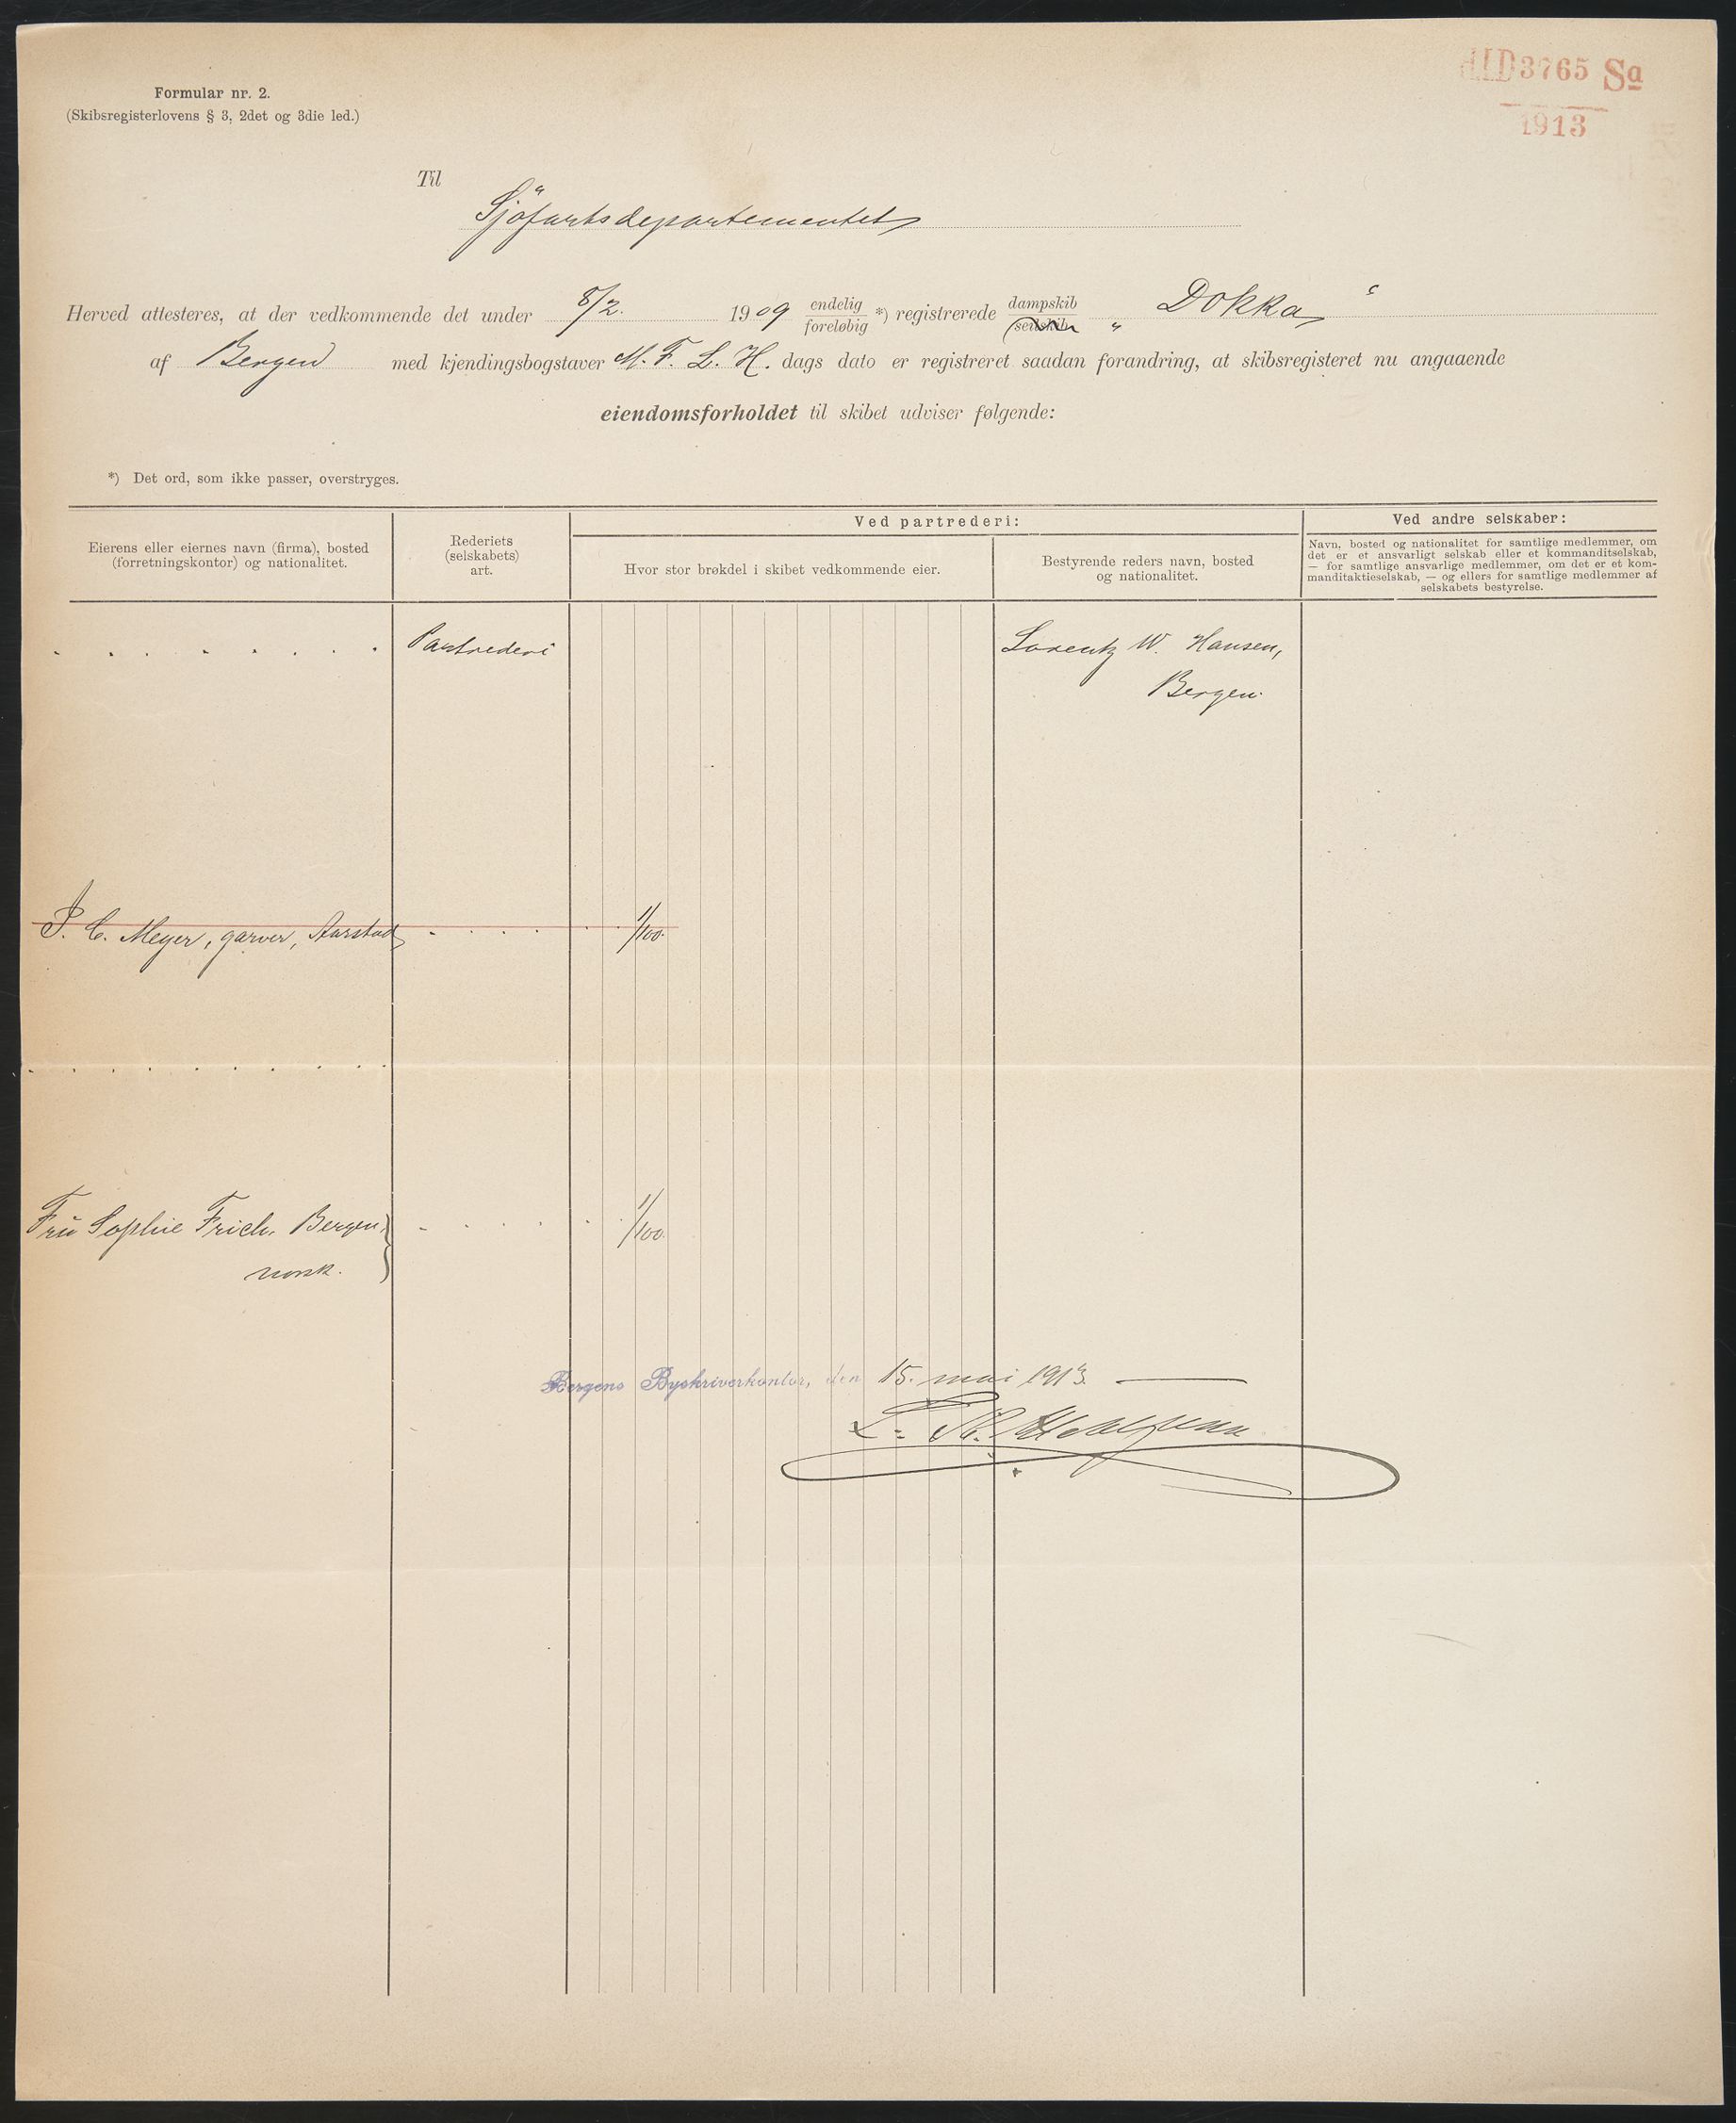 Formular nr. 2.
(Skibsregisterlovens § 3, 2det og 3die led.)
3765 Sa
1913
Til
Sjöfartsdepartementet
Herved attesteres, at der vedkommende det under 8/2. 1909 endelig foreløbig *) registrerede dampskib seilskib „Dokka“
af Bergen med kjendingsbogstaver M. F. L. H. dags dato er registreret saadan forandring, at skibsregisteret nu angaaende
eiendomsforholdet til skibet udviser følgende:
*) Det ord, som ikke passer, overstryges.
Eierens eller eiernes navn (firma), bosted
(forretningskontor) og nationalitet.
Rederiets
(selskabets)
art.
Ved partrederi:
Hvor stor brøkdel i skibet vedkommende eier.
Bestyrende reders navn, bosted
og nationalitet.
Ved andre selskaber:
Navn, bosted og nationalitet for samtlige medlemmer, om
det er et ansvarligt selskab eller et kommanditselskab,
— for samtlige ansvarlige medlemmer, om det er et kom-
manditaktieselskab, — og ellers for samtlige medlemmer af
selskabets bestyrelse.
. . . . . . . . Partrederi Lorentz W. Hansen,
Bergen.
P. C. Meyer, garver, Aarstad - . . . . . 1/100.
. . . . . . . . . .
Fru Sophie Frich, Bergen, - . . . . . 1/100.
norsk.
Bergens Byskriverkontor, den 15. mai 1913.